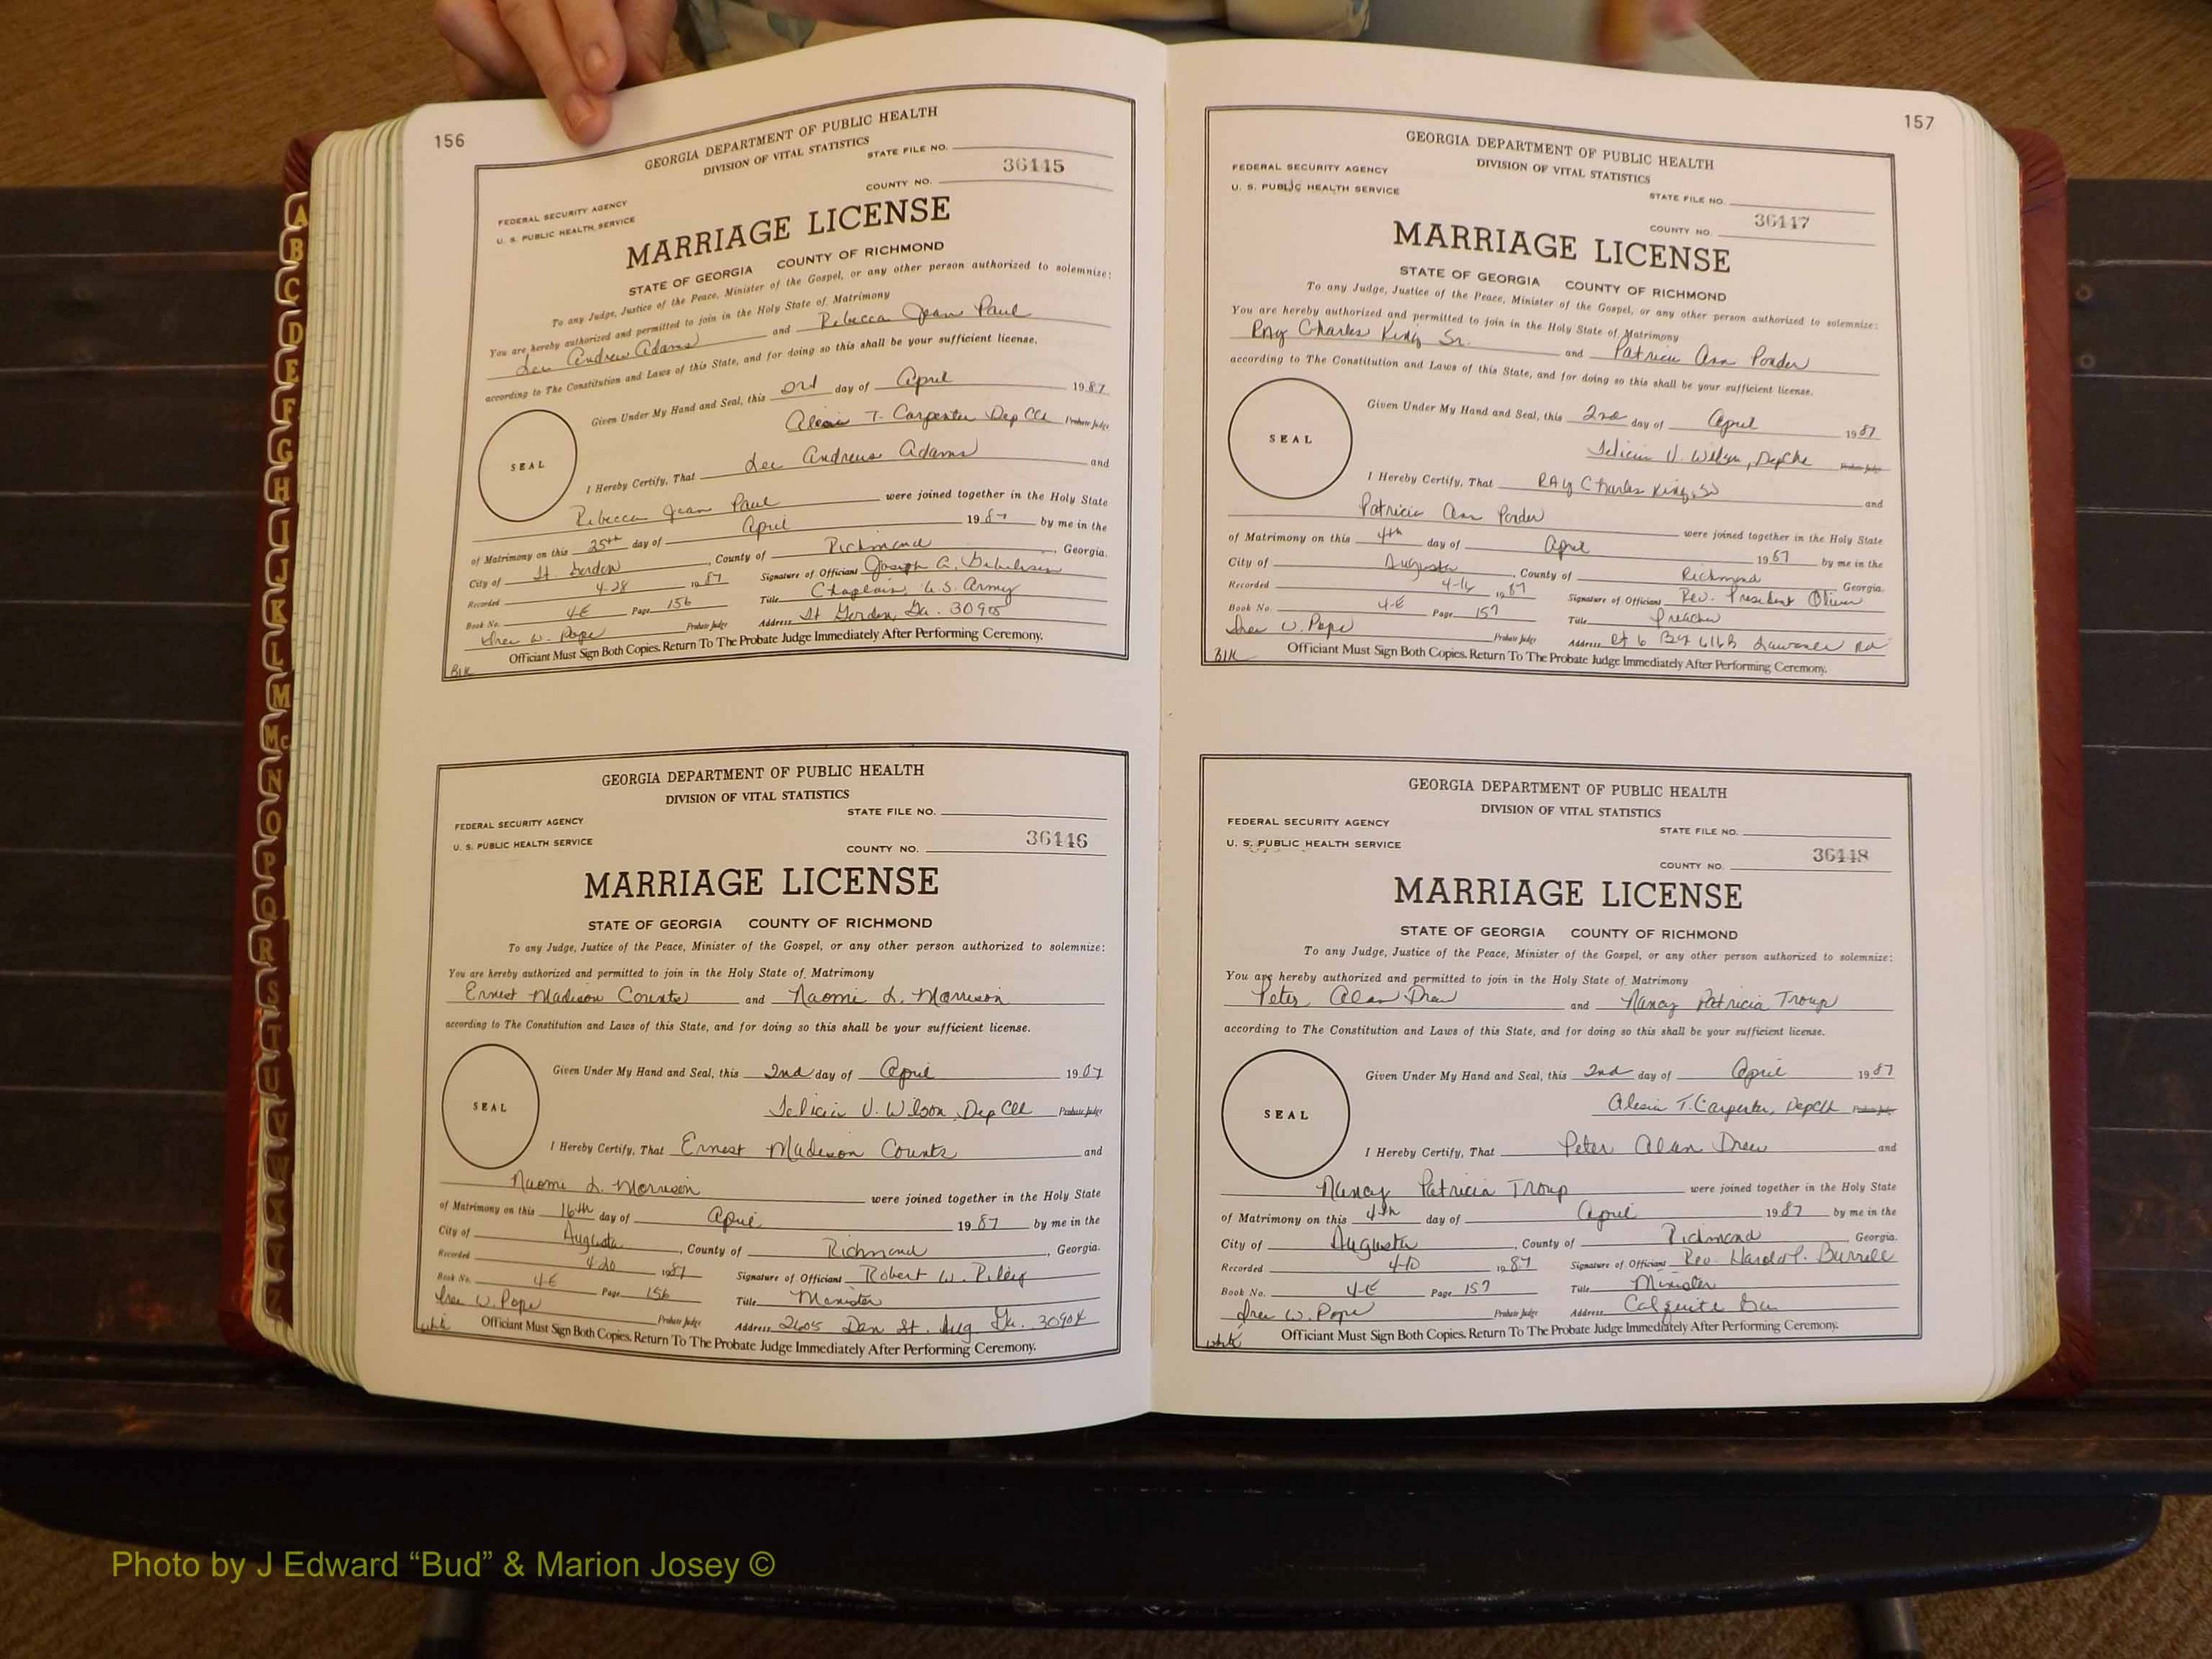 156
GEORGIA DEPARTMENT OF PUBLIC HEALTH
DIVISION OF VITAL STATISTICS
STATE FILE NO.
36445
COUNTY NO.
FEDERAL SECURITY AGENCY
U. S. PUBLIC HEALTH SERVICE
MARRIAGE LICENSE
STATE OF GEORGIA COUNTY OF RICHMOND
To any Judge, Justice of the Peace, Minister of the Gospel, or any other person authorized to solemnize:
You are hereby authorized and permitted to join in the Holy State of Matrimony
Lee Andrew Adams and Rebecca Jean Paul
according to The Constitution and Laws of this State, and for doing so this shall be your sufficient license.
Given Under My Hand and Seal, this day of April 1987
SEAL
Alesia T. Carpenter Dep Clk Probate Judge
I Hereby Certify, That Lee Andrew Adams and
Rebecca Jean Paul were joined together in the Holy State
of Matrimony on this 25th day of April 1987 by me in the
City of Ft. Gordon, County of Richmond, Georgia.
Recorded 4-28 1987 Signature of Officiant Joseph
Book No. 4-E Page 156 Title Chaplain, U.S. Army
W. Pope Probate Judge Address Ft Gordon, Ga. 30905
Officiant Must Sign Both Copies. Return To The Probate Judge Immediately After Performing Ceremony.
Blk
GEORGIA DEPARTMENT OF PUBLIC HEALTH
DIVISION OF VITAL STATISTICS
STATE FILE NO.
FEDERAL SECURITY AGENCY
U. S. PUBLIC HEALTH SERVICE
36446
COUNTY NO.
MARRIAGE LICENSE
STATE OF GEORGIA COUNTY OF RICHMOND
To any Judge, Justice of the Peace, Minister of the Gospel, or any other person authorized to solemnize:
You are hereby authorized and permitted to join in the Holy State of Matrimony
Ernest Madison Counts and Naomi L. Morrison
according to The Constitution and Laws of this State, and for doing so this shall be your sufficient license.
Given Under My Hand and Seal, this 2nd day of April 1987
SEAL
Felicia V. Wilson, Dep Clk Probate Judge
I Hereby Certify, That Ernest Madison Counts and
Naomi L. Morrison were joined together in the Holy State
of Matrimony on this 16th day of April 1987 by me in the
City of Augusta, County of Richmond, Georgia.
Recorded 4-20 1987 Signature of Officiant Robert W. Riley
Book No. 4-E Page 156 Title Minister
W. Pope Probate Judge Address 2605 St. Aug Ga. 30904
Officiant Must Sign Both Copies. Return To The Probate Judge Immediately After Performing Ceremony.
White
157
GEORGIA DEPARTMENT OF PUBLIC HEALTH
DIVISION OF VITAL STATISTICS
FEDERAL SECURITY AGENCY
U. S. PUBLIC HEALTH SERVICE
STATE FILE NO.
36447
COUNTY NO.
MARRIAGE LICENSE
STATE OF GEORGIA COUNTY OF RICHMOND
To any Judge, Justice of the Peace, Minister of the Gospel, or any other person authorized to solemnize:
You are hereby authorized and permitted to join in the Holy State of Matrimony
Ray Charles King Sr. and Patricia Ann Ponder
according to The Constitution and Laws of this State, and for doing so this shall be your sufficient license.
Given Under My Hand and Seal, this 2nd day of April 1987
SEAL
Felicia V. Wilson, Dep Clk Probate Judge
I Hereby Certify, That Ray Charles King, Sr and
Patricia Ann Ponder were joined together in the Holy State
of Matrimony on this 4th day of April 1987 by me in the
City of Augusta, County of Richmond Georgia.
Recorded 4-16 1987 Signature of Officiant Rev. President Oliver
Book No. 4-E Page 157 Title Preacher
W. Pope Probate Judge Address Rt 6 Rd
Officiant Must Sign Both Copies. Return To The Probate Judge Immediately After Performing Ceremony.
Blk
GEORGIA DEPARTMENT OF PUBLIC HEALTH
DIVISION OF VITAL STATISTICS
FEDERAL SECURITY AGENCY
STATE FILE NO.
U. S. PUBLIC HEALTH SERVICE
36448
COUNTY NO.
MARRIAGE LICENSE
STATE OF GEORGIA COUNTY OF RICHMOND
To any Judge, Justice of the Peace, Minister of the Gospel, or any other person authorized to solemnize:
You are hereby authorized and permitted to join in the Holy State of Matrimony
Peter Alan Drew and Nancy Patricia Troup
according to The Constitution and Laws of this State, and for doing so this shall be your sufficient license.
Given Under My Hand and Seal, this 2nd day of April 1987
SEAL
Alesia T. Carpenter, Dep Clk Probate Judge
I Hereby Certify, That Peter Alan Drew and
Nancy Patricia Troup were joined together in the Holy State
of Matrimony on this 4th day of April 1987 by me in the
City of Augusta, County of Richmond Georgia.
Recorded 4-10 1987 Signature of Officiant Rev. Harold P. Burrell
Book No. 4-E Page 157 Title Minister
W. Pope Probate Judge Address Colquitt Ga
Officiant Must Sign Both Copies. Return To The Probate Judge Immediately After Performing Ceremony.
White
A
B
C
D
E
F
G
H
I
J
K
L
M
Mc
N
O
P
Q
R
S
T
U
V
W
Y
Z
Photo by J Edward “Bud” & Marion Josey ©